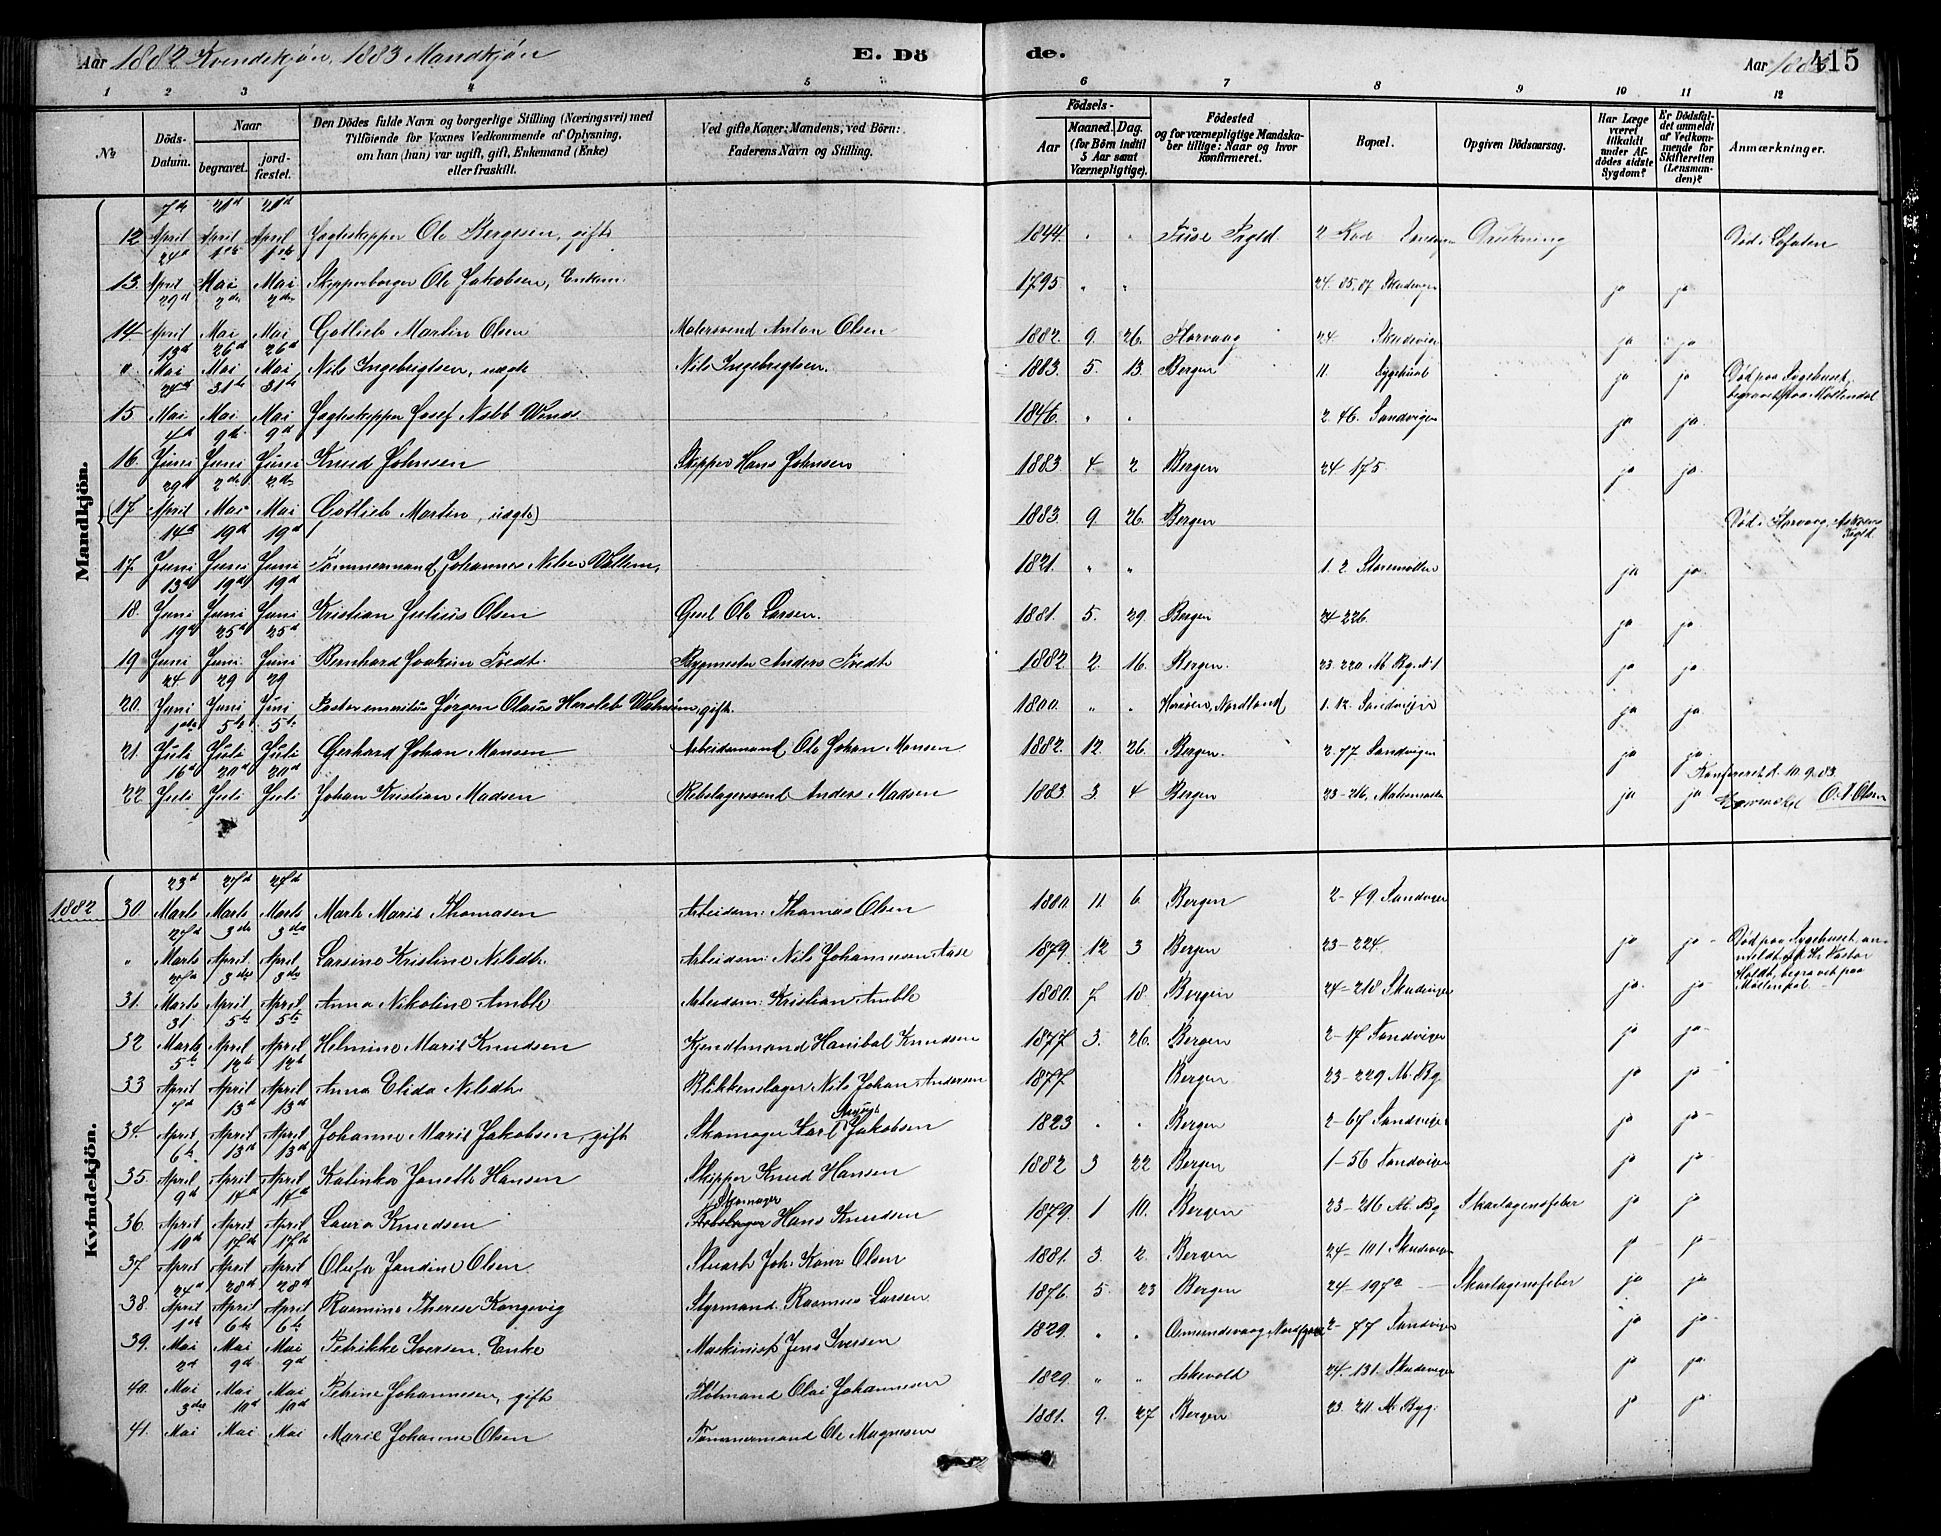 Aar 1882 Kvindekjøn, 1883 Mandkjøn E. Dö de. Aar 188 415
1 2 3 4 5 6 7 8 9 10 11 12
No Döds-Datum. Naar begravet. jordfæstet. Den Dödes fulde Navn og borgerlige Stilling (Næringsvei) med Tilföiende for Voxnes Vedkommende af Oplysning, om han (hun) var ugift, gift, Enkemand (Enke) eller fraskilt. Ved gifte Koner: Mandens, ved Börn: Faderens Navn og Stilling. Födsels- Aar Maaned. Dag. (for Börn indtil 5 Aar samt Værnepligtige). Födested og for værnepligtige Mandskaber tillige: Naar og hvor Konfirmeret. Bopæl. Opgiven Dödsaarsag. Har Læge været tilkaldt under Afdödes sidste Sygdom? Er Dödsfaldet anmeldt af Vedkommende for Skifteretten (Lensmanden)? Anmærkninger.
Mandkjön.
12 7de April 21d April 21d April Jagteskipper Ole Bergesen, gift 1844 " " Fuse Prgld. 2 Rod Sandvigen Drukning Død i Lofoten
13. 24d April 1ste Mai 1ste Mai Skipperborger Ole Jakobsen, Enkem. 1795 " " 24. 85,87 Skudevigen ja ja
14. 29d April 2den Mai 2den Mai Gotlieb Martin Olsen Malersvend Anton Olsen 1882. 9. 26. Florvaag 24 Skudevigen ja ja
" 13d Mai 26d Mai 26d Mai Nils Ingebrigtsen, uægte Nils Ingebrigtsen. 1883. 5. 13. Bergen 11. Sygehuset ja ja Død paa Sygehuset, begravet paa Møllendal
15 24d Mai 31te Mai 31te Mai Jagteskipper Josef Nebb Wenos. 1846. " " 2. 46. Sandvigen ja ja
16. 4d Juni 9d Juni 9d Juni Knud Johnsen Skipper Hans Johnsen 1883 4 2 Bergen 24 175 ja ja
(17 29d April 2den Mai 2den Mai Gotlieb Martin, uægte) 1883. 9. 26. Bergen Død i Florvaag, Askøens Prgld.
17. 14d Juni 19d Juni 19d Juni Tømmermand Johannes Nilsen Vallem, 1821. " " 1. 2. Storemøllen ja ja
18. 13d Juni 19d Juni 19d Juni Kristian Julius Olsen Gsel Ole Larsen. 1881. 5. 29. Bergen 24 226. ja ja
19 19d Juni 25d Juni 25d Juni Bernhard Joakim Tvedt. Bygmester Anders Tvedt 1882 2 16. Bergen. 23. 220 M. Bg. No 1 ja ja
20. 24 Juni 29 Juni 29 Juni Pastor emeritus Jørgen Olaus Hersleb Walnum, gift. 1800. " " Herøen, Nordland 1. 12. Sandvigen ja ja
21. 1ste Juli 5te Juli 5te Juli Gerhard Johan Monsen Arbeidsmand Ole Johan Monsen 1882. 12. 26. Bergen. 2. 77 Sandvigen ja ja
22 16d Juli 20d Juli 20d Juli Johan Kristian Madsen Rebslagersvend Anders Madsen 1883. 3. 4 Bergen 23-216, ja ja Konfereret d. 10. 9. 83. O. A. Olsen
1882 Kvindekjön.
30. 23d Marts 27d Marts 27d Marts Marte Marie Thomasen Arbeidsm: Thomas Olsen 1880. 11 6 Bergen 2-49 Sandvigen
" 27d Marts 3die April 3die April Larsine Kristine Nilsdtr. Arbeidsm: Nils Johannesen Aase 1879. 12 3 Bergen 23-224. ja ja Død paa Sygehuset, anmeldt af Hr. Pastor Holdt, begravet paa Møllendal
31. Marts 3die April 3die April Anna Nikoline Amble Arbeidsm: Kristian Amble 1880. 7 18. Bergen 24-218 Skudevigen ja ja
32 31. Marts 5te April 5te April Helmine Marie Knudsen Kjendtmand Hanibal Knudsen 1877 3. 26. Bergen 2-17 Sandvigen ja ja
33 5te April 12te April 12te April Anna Elida Nilsdtr Blikkenslager Nils Johan Andersen 1877 Bergen 23-229 M. Bg. ja ja
34. 7d April 13d April 13d April Johanne Marie Jakobsen, gift Skomager Karl August Jakobsen 1823 " " Bergen 2-67 Sandvigen ja ja
35. 6te April 13d April 13d April Katinka Janette Hansen Skipper Knud Hansen 1882 3 22 Bergen 1-56 Sandvigen ja ja
36. 9d April 14d April 14d April Laura Knudsen Skomager Hans Knudsen 1879. 1 10. Bergen 23-216 M. Bg Skarlagensfeber ja ja
37. 10d April 17d April 17d April Olufa Jandine Olsen. Stuart Joh. Konr Olsen 1881. 3. 2. Bergen 24-101 Skudevigen ja ja
38. 24d April 28d April 28d April Rasmine Therese Kongevig Styrmand. Rasmus Larsen 1876. 5. 23 Bergen 24-197a Skarlagensfeber ja ja
39. 1ste Mai 6te Mai 6te Mai Petrikke Iversen, Enke Maskinist Jens Iversen 1829. " " 2-77 Sandvigen ja ja
40. 2d Mai 9d Mai 9d Mai Petrine Johannesen, gift Flötmand Olai Johannesen 1829. " " Askevold 24. 131. Skudevigen ja ja
41. 3die Mai 10d Mai 10d Mai Marie Johanne Olsen Tømmermand Ole Magnesen 1881. 9. 27 Bergen 23. 211 M. Byg. ja ja